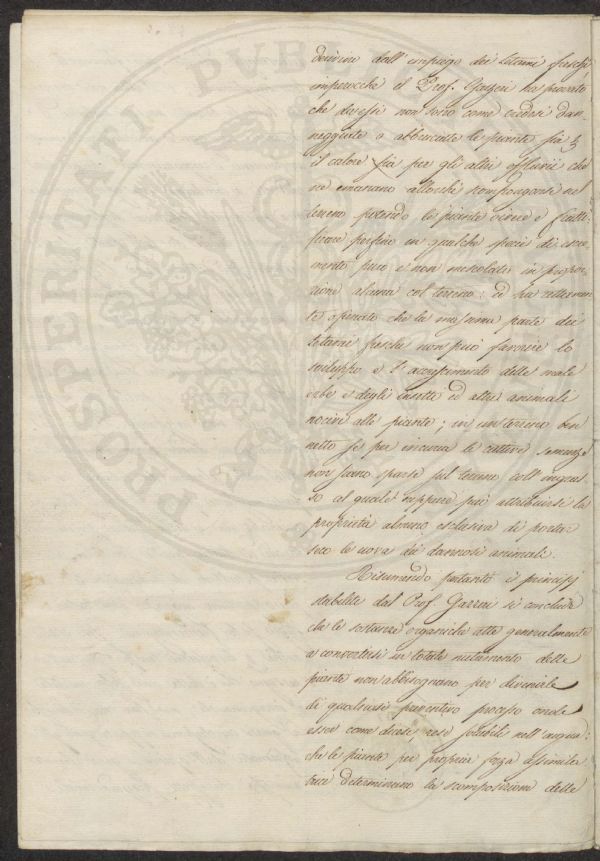 derivino dall'impiego dei letami freschi
imperocchè il Prof. Gazzeri ha provato
che dovessi non sono come credesi dan,
neggiate o abbruciate le piante sia p
il calore sia per gli altri effluvii che
ne emanano allorchè scompongonsi nel
terreno potendo le piante vivere e frutti,
ficare perfino in qualche specie di conci,
mento puro e non mescolato in propor,
zione alcuna col terreno: ed ha ulteriormen
te opinato che la massima parte dei
letami freschi non può favorire lo
sviluppo e l'accrescimento delle male
erbe e degli insetti ed altri animali
nocivi alle piante; in un terreno ben
netto se per incuria le cattive semenze
non siano sparse sul terreno coll'ingras
so al quale neppure può attribuirsi la
proprietà almeno esclusiva di portar
seco le uova dei dannosi animali.
Riassumendo pertanto i principj
stabiliti dal Prof. Gazzeri si conclude
che le sostanze organiche atte generalmente
a convertirsi in totale nutrimento delle
piante non abbisognano per divenirle
di qualsivisi preventivo processo onde
esser come dicesi, rese solubili nell'acqua:
che le piante per propria forza assimila
trice determinano la scomposizione delle
PROSPERITATI PUBLIC